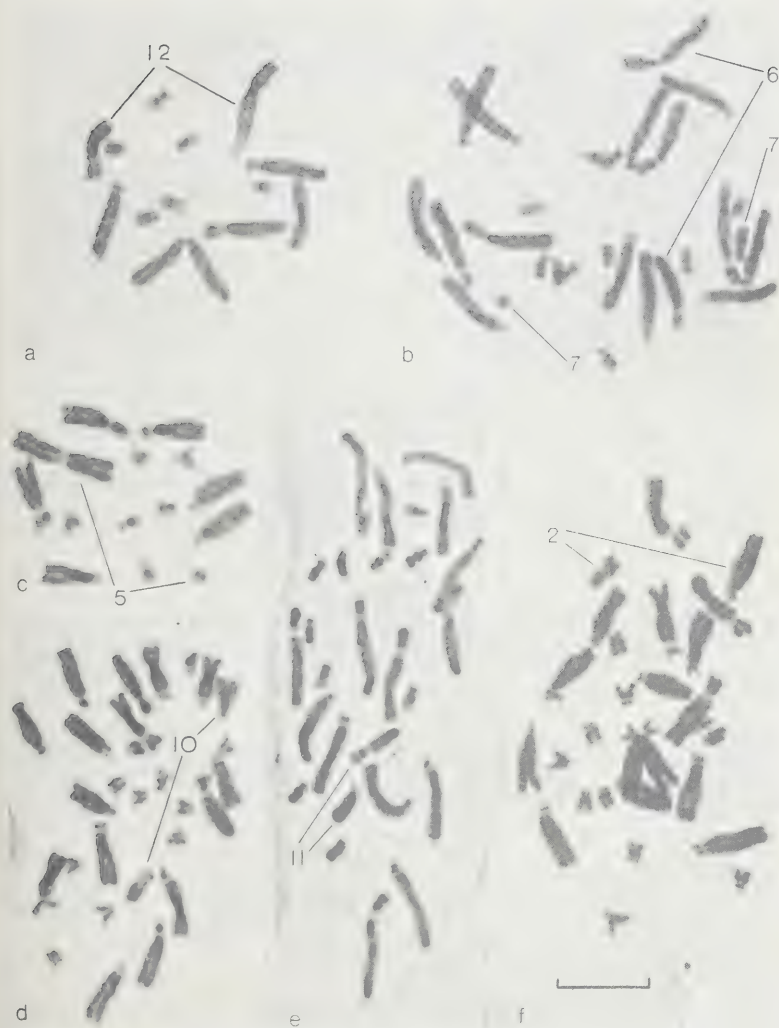 12
6
7
a
b
7
c
5
2
10
11
d
e
f